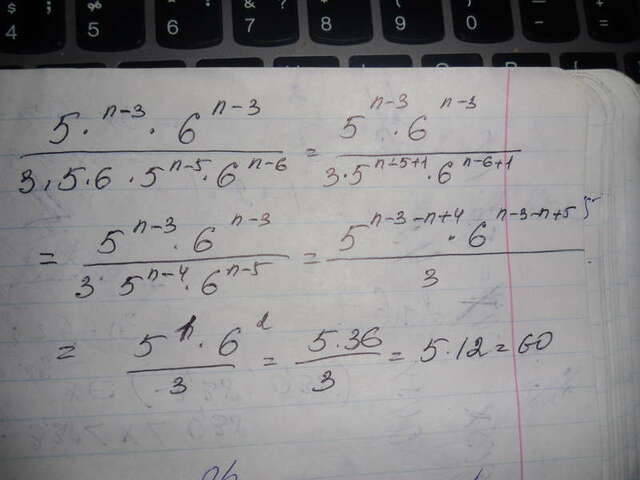 $ 4 ; % 5 : 6 & ? 7 * 8 ( 9 ) 0 - + =
5·^(n-3) · 6^(n-3) / 3,5·6·5^(n-5)·6^(n-6) = 5^(n-3) · 6^(n-3) / 3·5^(n-5+1)·6^(n-6+1)
= 5^(n-3) · 6^(n-3) / 3·5^(n-4)·6^(n-5) = 5^(n-3-n+4) · 6^(n-3-n+5) / 3
= 5^1 · 6^2 / 3 = 5·36 / 3 = 5·12 = 60